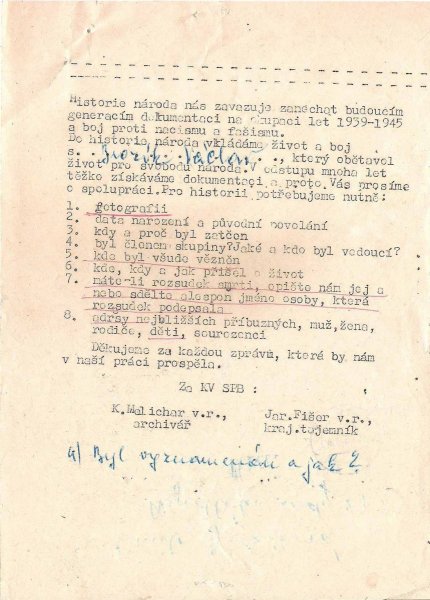 Historie národa nás zavazuje zanechat budoucím
generacím dokumentaci na okupaci let 1939-1945
a boj proti nacismu a fašismu.
Do historie národa vkládáme život a boj
s. . . . . , který obětoval
život pro svobodu národa. V odstupu mnoha let
těžko získáváme dokumentaci a proto Vás prosíme
o spolupráci. Pro historii potřebujeme nutně:
1. fotografii
2. data narození a původní povolání
3. kdy a proč byl zatčen
4. byl členom skupiny? Jaké a kdo byl vedoucí?
5. kde byl všude vězněn
6. kde, kdy a jak přišel o život
7. máte-li rozsudek smrti, opište nám jej a
nebo sdělte alespon jméno osoby, která
rozsudek podepsala
8. adrsy nejbližších příbuzných, muž, žena,
rodiče, děti, sourozenci
Děkujeme za každou zprávů, která by nám
v naší práci prospěla.
Za KV SPB :
K. Melichar v.r., Jar. Fišer v.r.,
archivář kraj. tajemník
9) Byl vyznamenán a jak ?